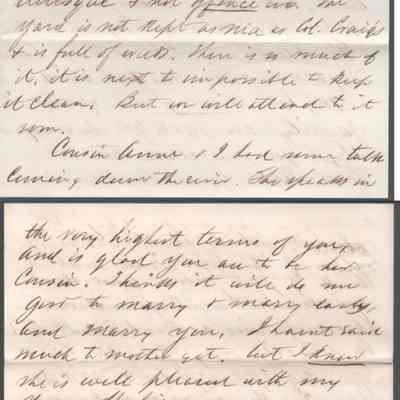 & not offence over the
yard is not kept as nice as Col. Craig's
& is full of weeds. There is so much of
it, it is next to impossible to keep
it clean. But we will attend to it
soon.
Cousin Anne & I had some talk
Coming down the river. She speaks in
the very highest terms of you,
and is glad you are to be her
Cousin. Thinks it will do me
good to marry & marry early,
and marry you. I havn't said
much to mother yet. but I know
she is well pleased with my